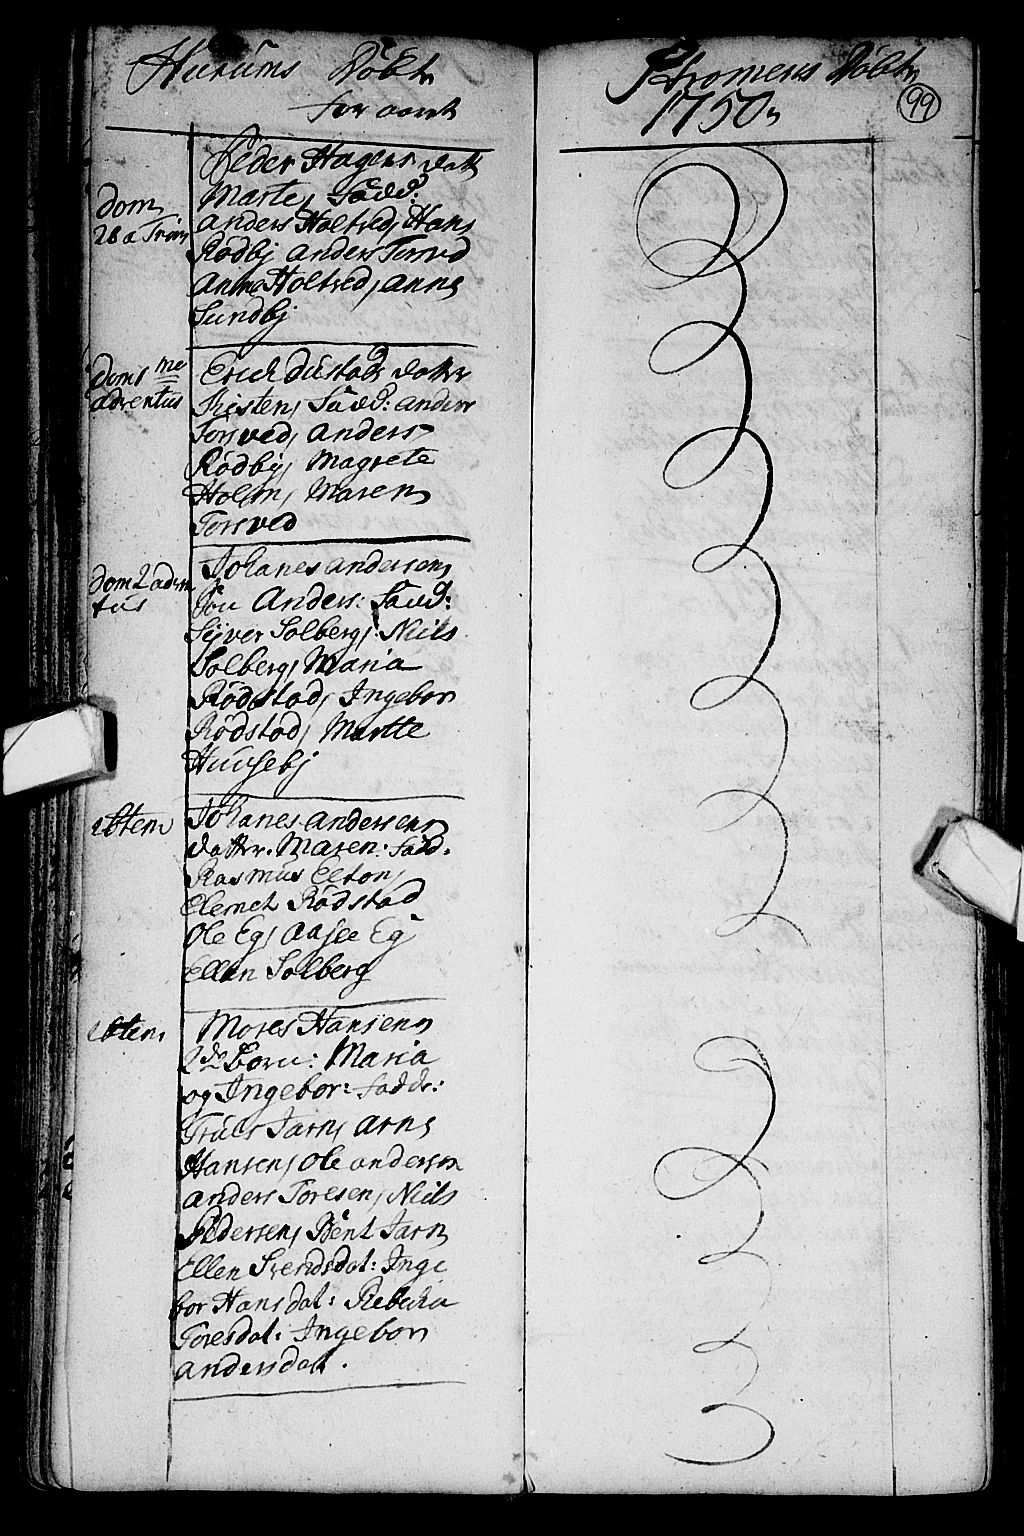 Hurums Döbte
for aaret
Strömens Döbte
1750
99
Peder Hagens datt
Marte, Fadd:
Anders Holtved, Hans
Rödbÿ Anders Torsved
Anna Holtved, Anne
Sundbÿ
Dom
26 a Trin
Erich datter
Kirsten, Fadd: Anders
Torsved, Anders
Rödbÿ, Magrete
Holm, Maren
Torsved
Dom 1 me
adventus
Johanes Andersens
Sön Anders: Fadd:
Syver Solberg, Niels
Solberg, Maria
Rödstad, Ingebor
Rödstad, Martte
Huusebÿ
Dom 2 adven
tus
Johanes Anderssens
datter. Maren: Fadd.
Rasmus Elton,
Clemet Rödstad
Ole Eg, Aasee Eg
Ellen Solberg
ibtem
Moses Hansens
2de Börn: Maria
og Ingebor: Fadde:
Truls Jarn, Arne
Hansen, Ole Andersen
Anders Toresen, Niels
Pedersen, Bent Jarn
Ellen Svendsdat: Inge
bor Hansdat: Rebecka
Toresdat: Ingebor
Andersdatt.
ibtem